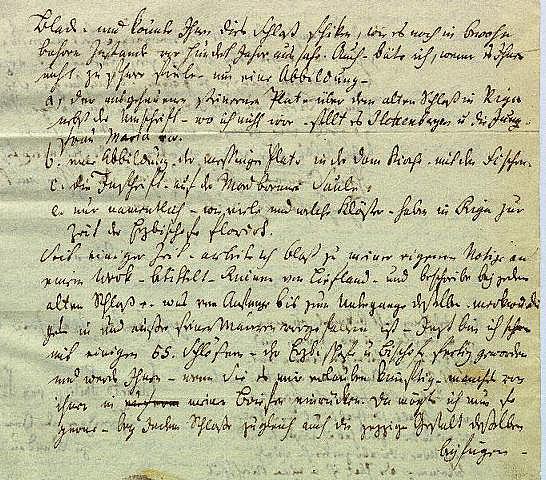 Blade. und könnte Ihnen dies Schloß schiken, wie es noch in bewohn
bahren Zustande vor hundert Jahre aussahe. Auch bäte ich, wenn es Ihnen
nicht zu schwer fiele um eine Abbildung
a, der ausgehauene steinerne Plate über dem alten Schloß in Riga
nebst der Umschrift - wo ich nicht irre - stellt es Plettenberg u die Jung
frau Maria vor.
b. eine Abbildung der messinge Plate in der Dom Kirche mit den Fischen.
c. die Inschrift auf der Säule.
e. nur namentlich - wie viele und welche Klöster haben in Riga zur
Zeit der Erzbischofe florirt.
Seit einiger Zeit arbeite ich bloß zu meiner eigenen Notize an
einem Werk betittelt Ruinen von Liefland - und beschreibe bey jedem
alten Schloße was von Anfange bis zum Untergange desselben merkwürdi
ges in und außer seiner Mauern vorgefallen ist - Jezt bin ich schon
mit einigen 55. Schößern der Erzbischofe u. Bischofe fertig geworden
und werde Ihnen - wenn Sie es mir erlauben künftig manches von
ihnen in meine Briefe einrücken. Da mögte ich nun so
gerne - bey jedem Schloße zugleich auch die jezzige Gestalt desselben
beyfügen -